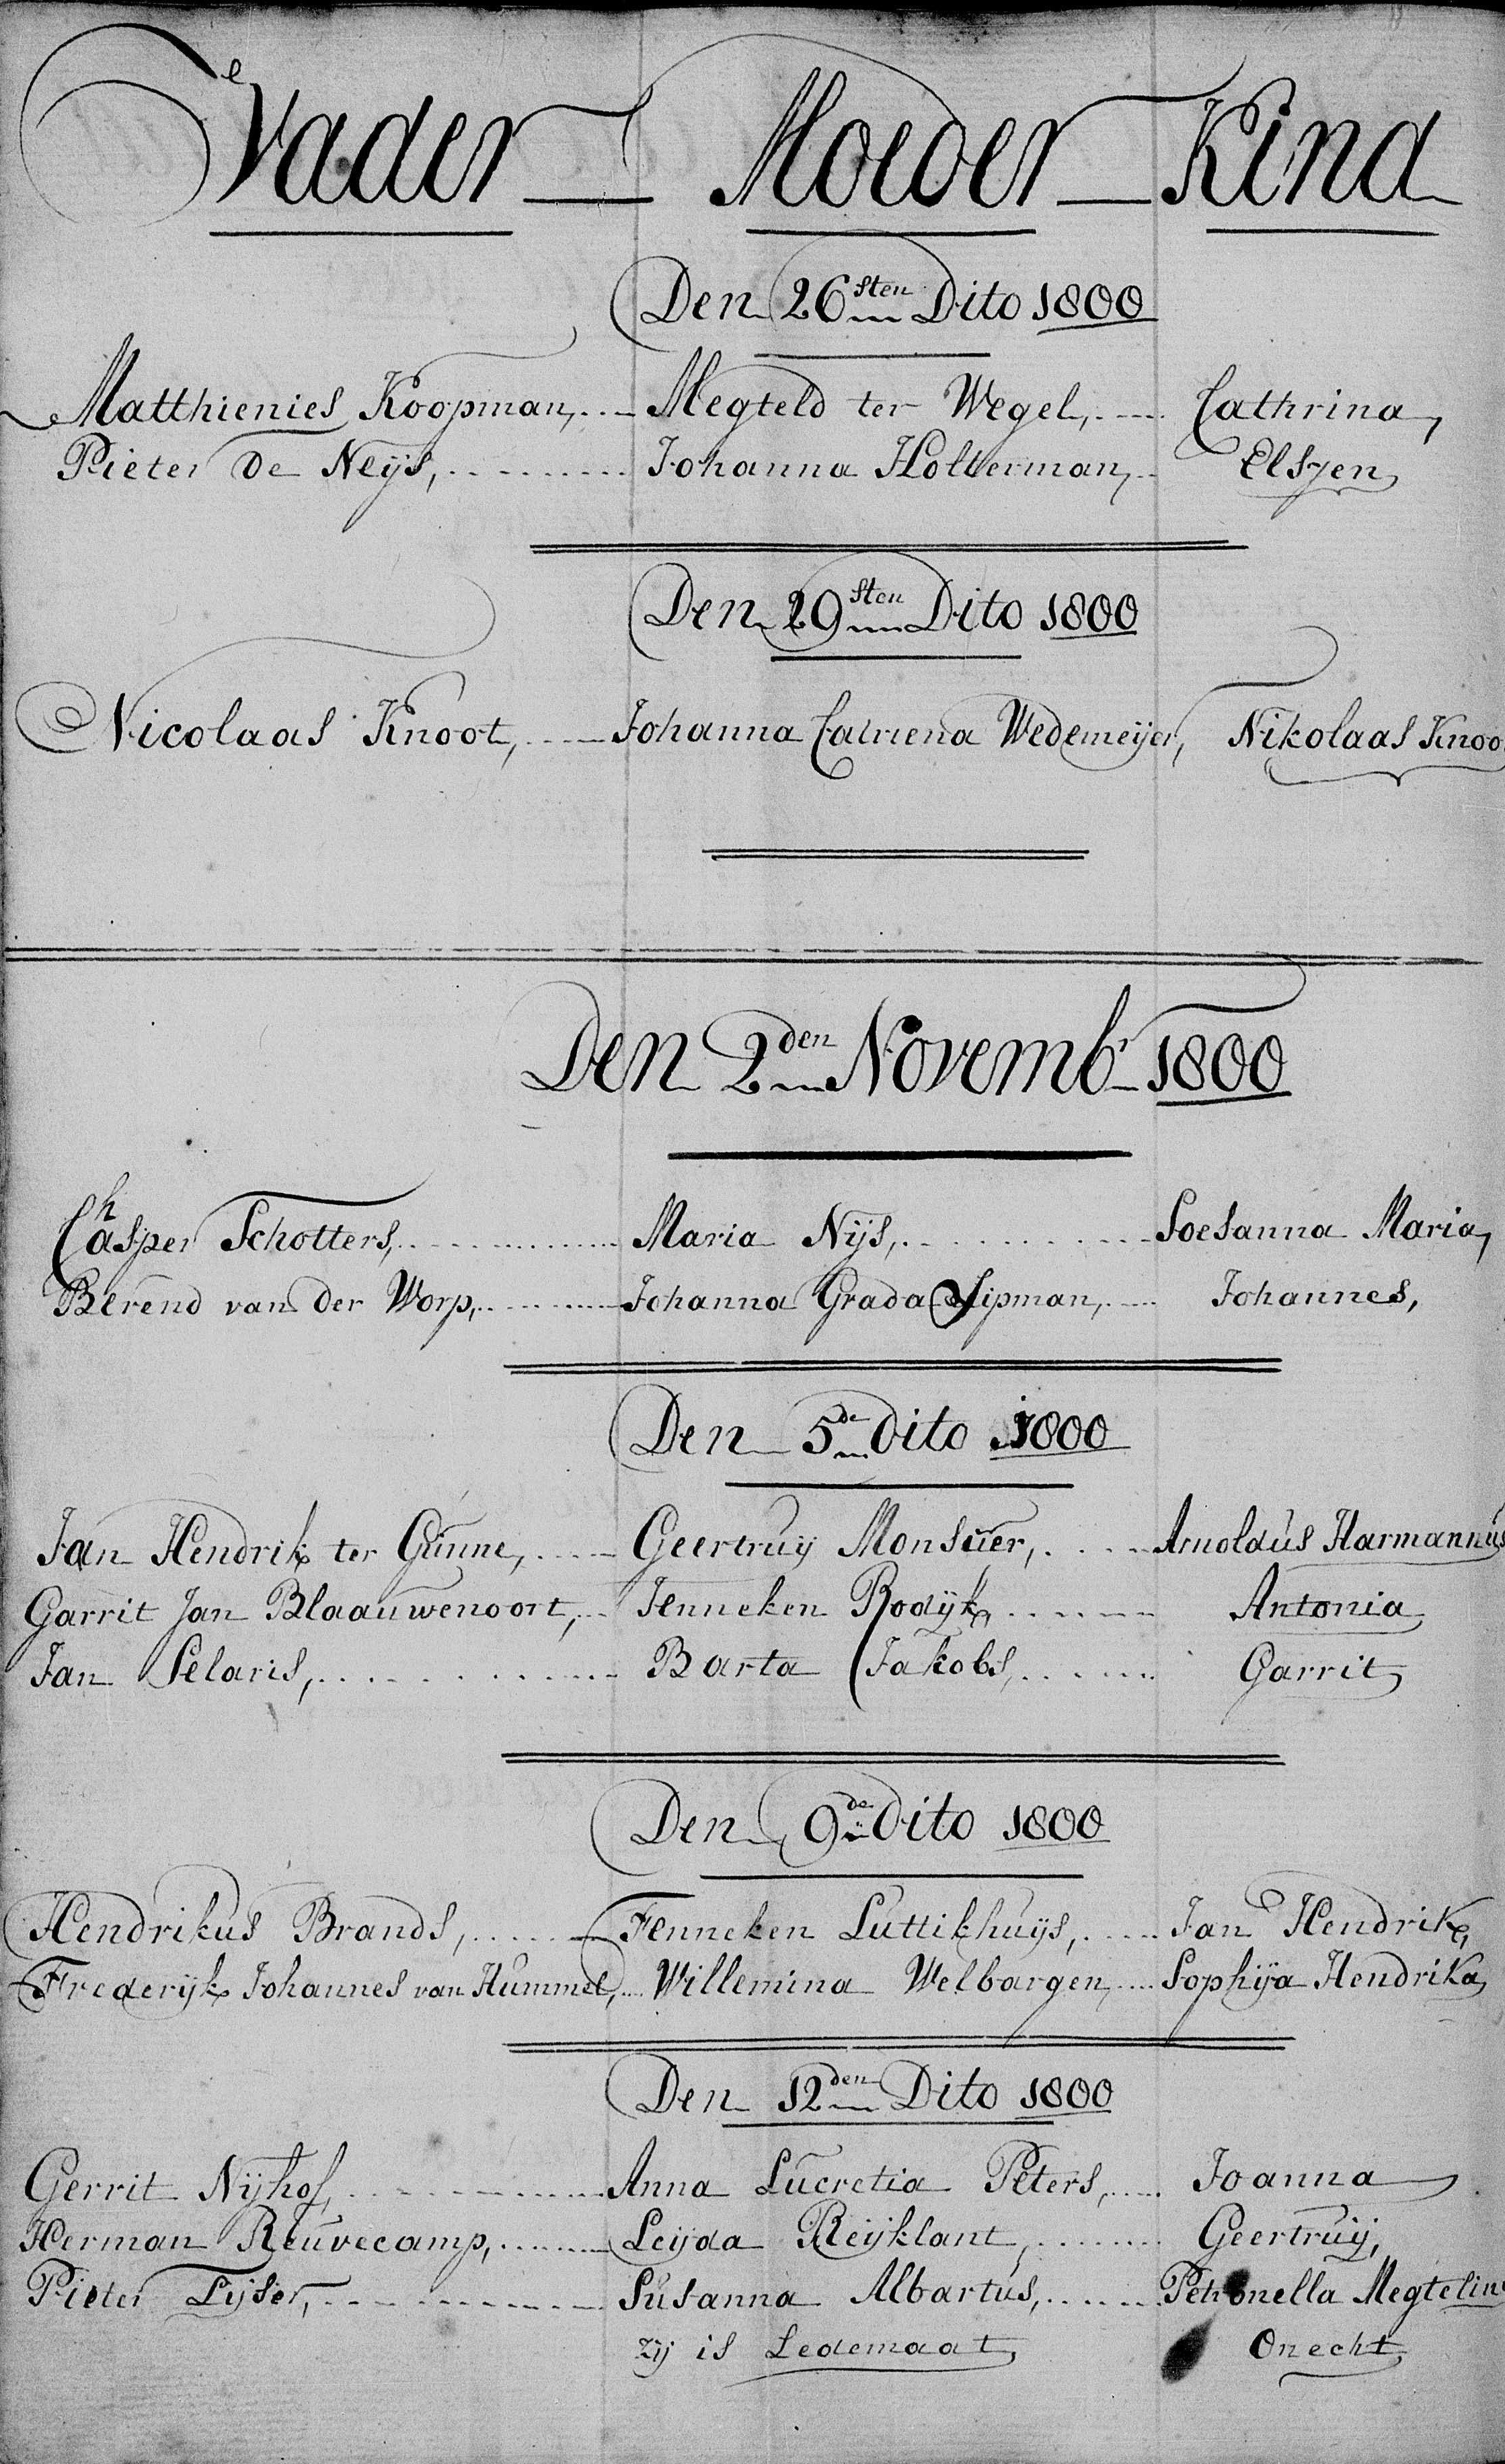 Vader Moeder Kind
Den 26sten Dito 1800
Matthienies Koopman, Megteld ter Wegel, Cathrina,
Pieter De Neÿs, Johanna Holterman, Elsjen,
Den 29sten Dito 1800
Nicolaas Knoot, Johanna Catriena Wedemeÿer, Nikolaas Knoo
Den 2den Novembr 1800
Chasper Schotters, Maria Nÿs, Soesanna Maria,
Berend van der Worp, Johanna Grada Sipman, Johannes,
Den 5de Dito 1800
Jan Hendrik ter Gunne, Geertruÿ Monsuer, Arnoldus Harmannus
Garrit Jan Blaauwenoort, Jenneken Rodÿk, Antonia
Jan Selaris, Barta Jakobs, Garrit,
Den 9de Dito 1800
Hendrikus Brands, Fenneken Luttikhuÿs, Jan Hendrik,
Frederÿk Johannes van Hummel, Willemina Welbargen, Sophÿa Hendrika,
Den 12den Dito 1800
Gerrit Nÿhof, Anna Lucretia Peters, Joanna
Herman Reuvecamp, Leÿda Reÿklant, Geertruÿ,
Pieter Lÿser, Susanna Albartus, Petronella Megtelin
zÿ is Ledemaat, Onecht,